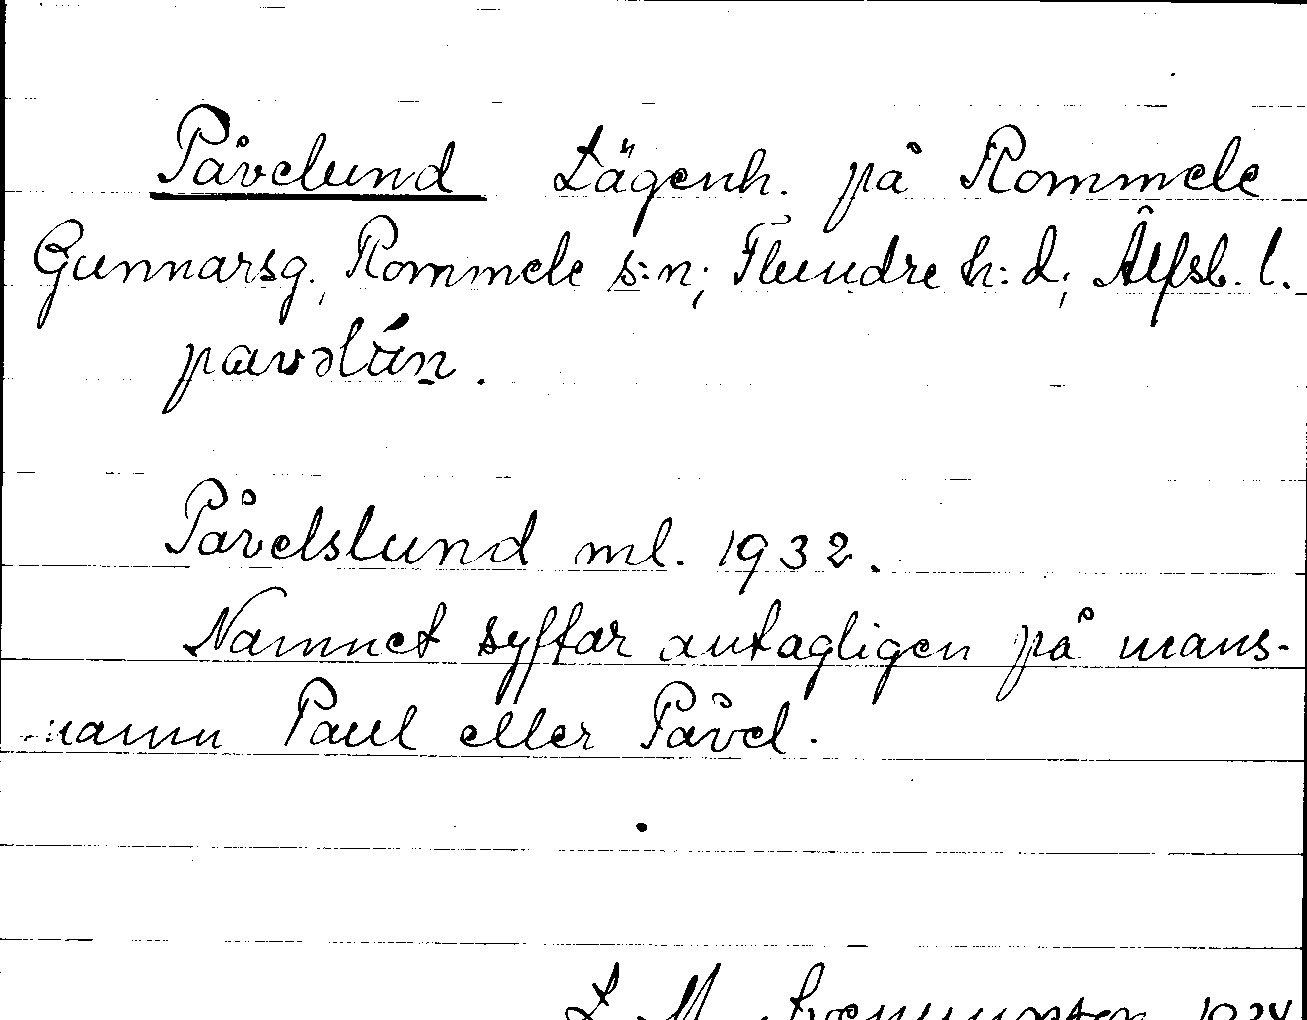 Påvelund Lägenh. på Rommele
Gunnarsg., Rommele s:n; Flundre h:d; Älfsb. l.
pavəlún.
Påvelslund ml. 1932.
Namnet syftar antagligen på mans-
namn Paul eller Påvel.